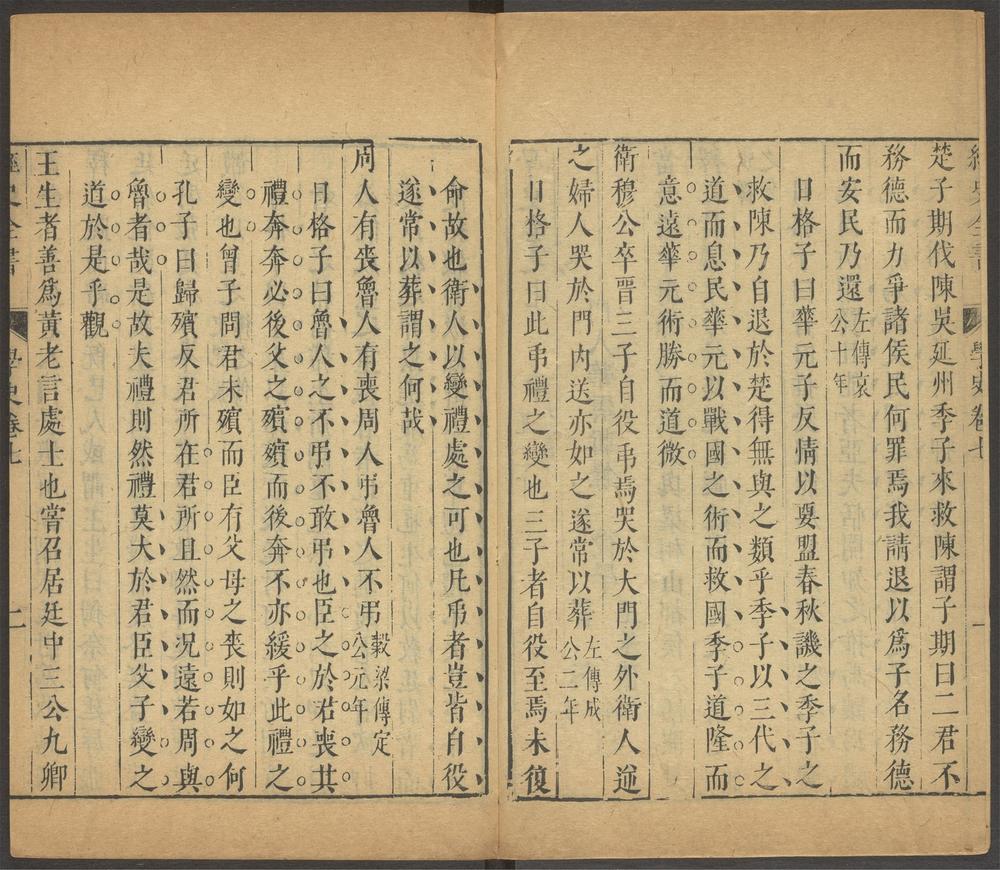 學史卷七 一
楚子期伐陳吳延州季子來救陳謂子期曰二君不
務德而力爭諸侯民何罪焉我請退以爲子名務德
而安民乃還左傳哀公十年
日格子曰華元子反情以要盟春秋譏之季子之
救陳乃自退於楚得無與之類乎季子以三代之
道而息民華元以戰國之術而救國季子道隆而
意遠華元術勝而道微
衛穆公卒晋三子自役弔焉哭於大門之外衛人逆
之婦人哭於門內送亦如之遂常以葬左傳成公二年
日格子曰此弔禮之變也三子者自役至焉未復
命故也衛人以變禮處之可也凡弔者豈皆自役
遂常以葬謂之何哉
周人有丧魯人有喪周人弔魯人不弔穀梁傳定公元年
日格子曰魯人之不弔不敢弔也臣之於君喪其
禮奔奔必後父之殯殯而後奔不亦緩乎此禮之
變也曾子問君未殯而臣有父母之丧則如之何
孔子曰歸殯反君所在君所且然而况遠若周與
魯者哉是故夫禮則然禮莫大於君臣父子變之
道於是乎觀
王生者善爲黃老言處士也嘗召居廷中三公九卿
經史全書 學史卷七 二